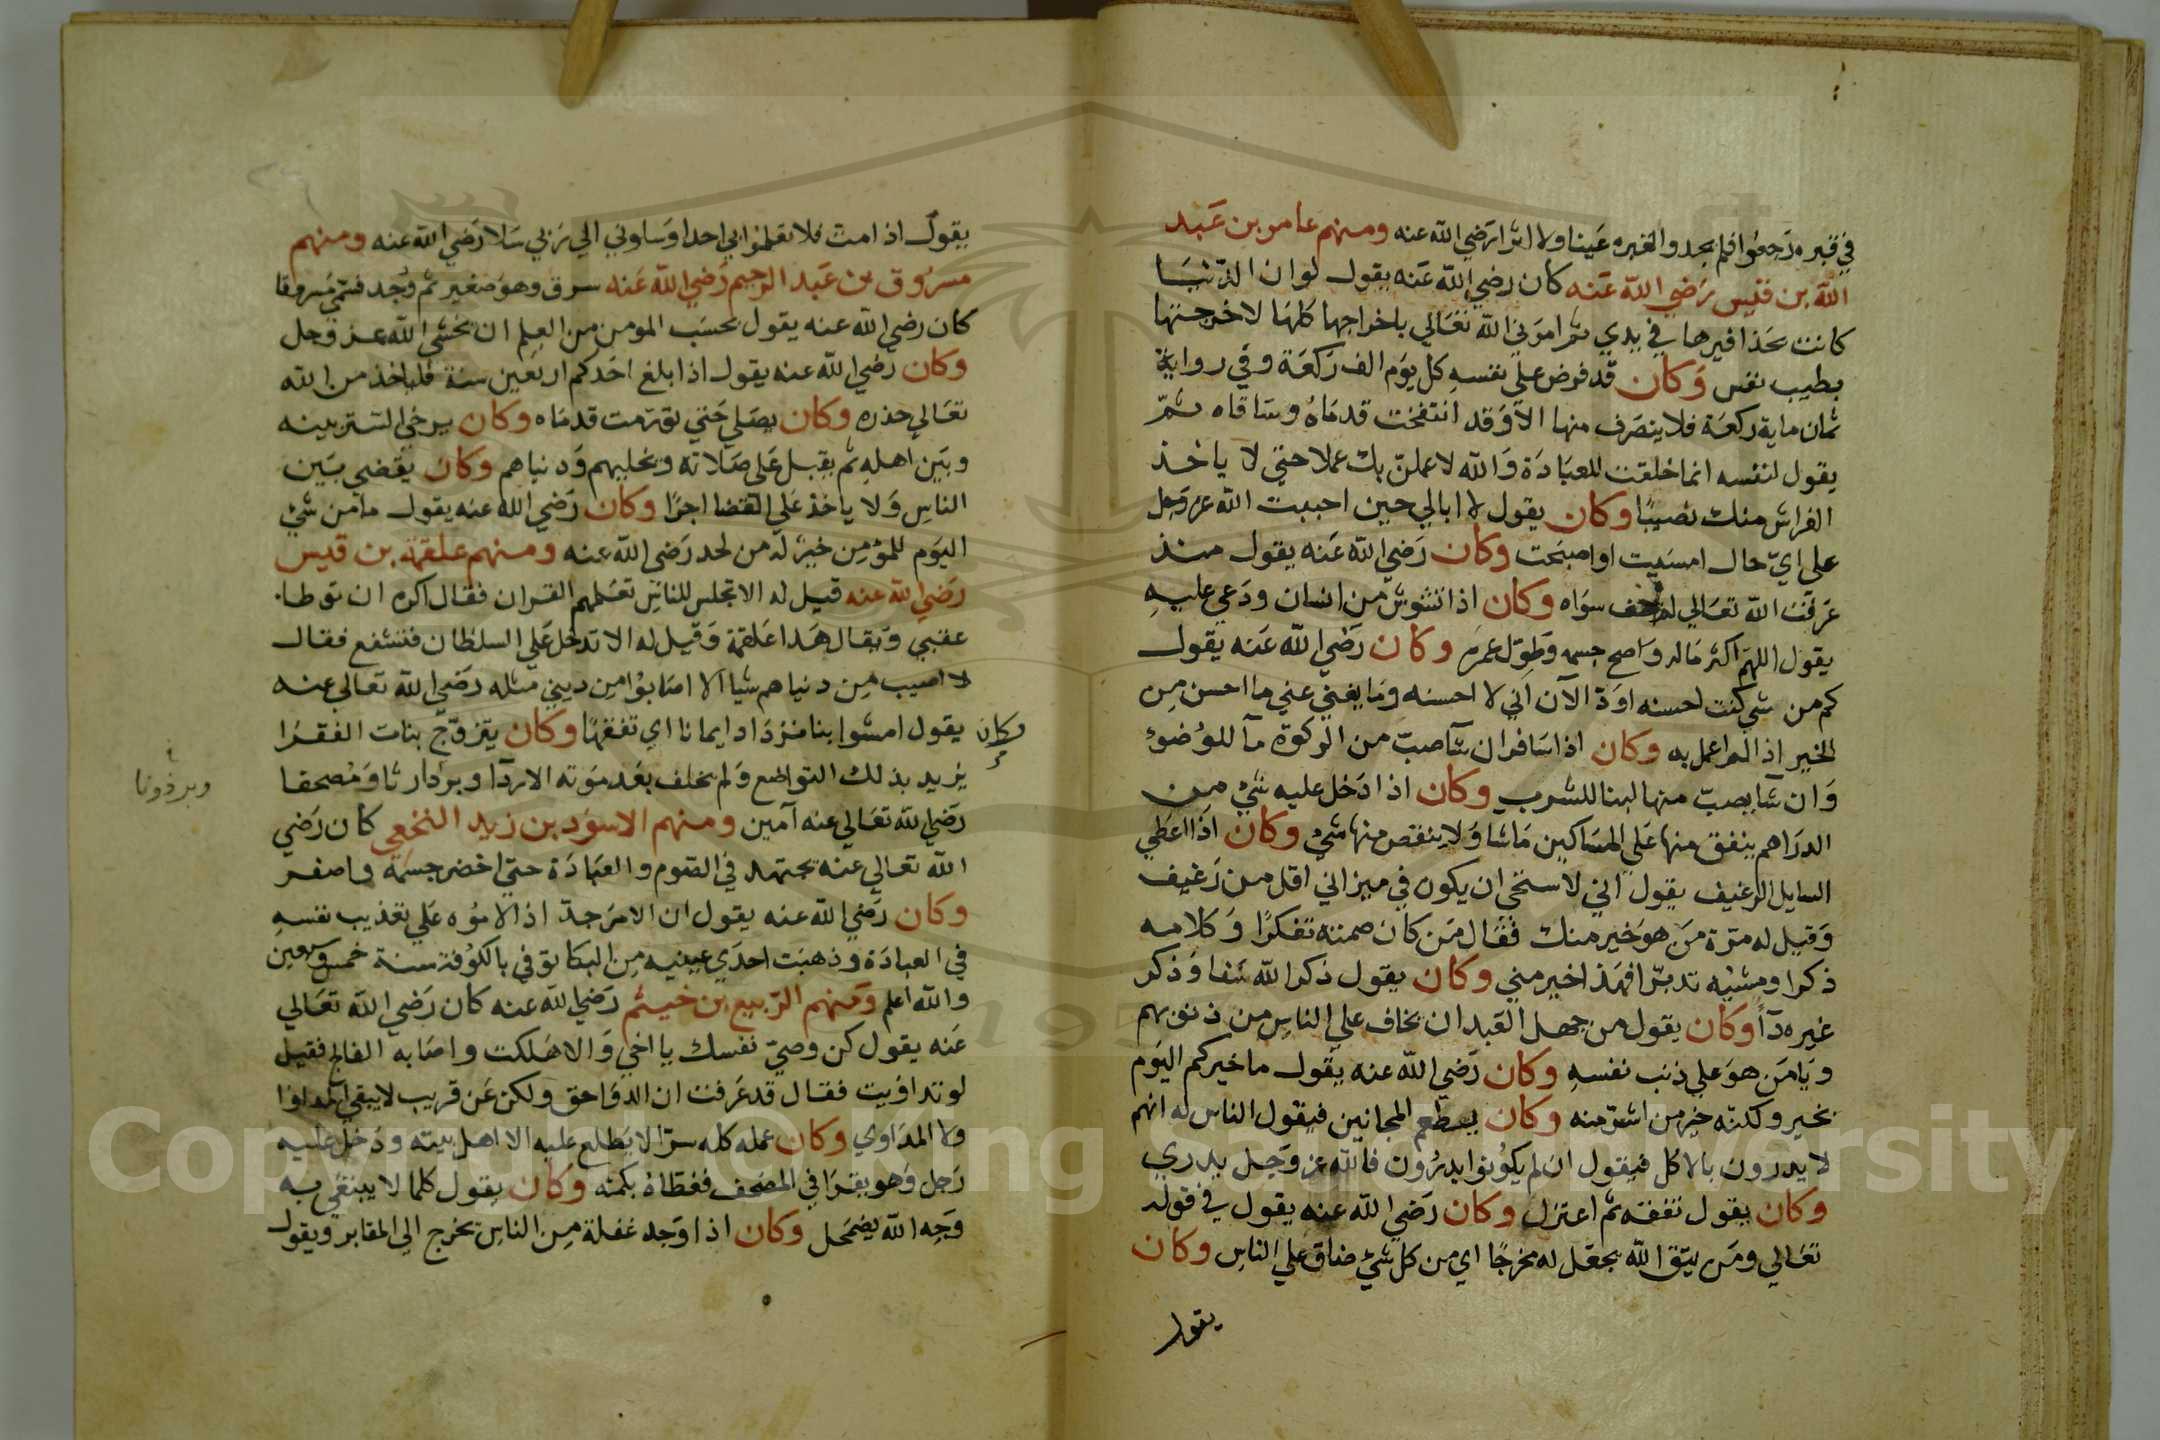 في قبره رجعوا فلم يجدوا لقبره عينا ولا اثرا رضي الله عنه ومنهم عامر بن عبد
الله بن قيس رضي الله عنه كان رضي الله عنه يقول لو ان الدنيا
كانت بحذافيرها في يدي ثم امرني الله تعالي باخراجها كلها لاخرجتها
بطيب نفس وكان قد فرض علي نفسه كل يوم الف ركعة وفي رواية
ثمان ماية ركعة فلا ينصرف منها الا وقد انتفخت قدماه وساقاه ثم
يقول لنفسه انما خلقت للعبادة والله لاعملن بك عملا حتي لا ياخذ
الفراش منك نصيبا وكان يقول لا ابالي حين احببت الله عز وجل
علي اي حال امسيت او اصبحت وكان رضي الله عنه يقول منذ
عرفت الله تعالي لم اخف سواه وكان اذا تشوش من انسان ودعي عليه
يقول اللهم اكثر ماله واصح جسمه وطول عمره وكان رضي الله عنه يقول
كم من شي كنت احسنه اود الآن اني لا احسنه وما يغني عني ما احسن من
الخير اذا لم اعمل به وكان اذا سافر ان شآ صب من الركوة مآ للوضوء
وان شآ يصب منها لبنا للشرب وكان اذا دخل عليه شيء من
الدراهم ينفق منها علي المساكين ماشا ولا ينقص منها شيء وكان اذا اعطي
السايل الرغيف يقول اني لاستحي ان يكون في ميزاني اقل من رغيف
وقيل له مرة من هو خير منك فقال من كان صمته تفكرا وكلامه
ذكرا ومشيه تدبرا فهذا خير مني وكان يقول ذكر الله شفا وذكر
غيره دآ وكان يقول من جهل العبد ان يخاف علي الناس من ذنوبهم
ويامن هو علي ذنب نفسه وكان رضي الله عنه يقول ما خيركم اليوم
بخير ولكنه خير من اشر منه وكان يطعم المجانين فيقول الناس له انهم
لا يدرون بالاكل فيقول ان لم يكونوا يدرون فالله عز وجل يدري
وكان يقول تفقه ثم اعتزل وكان رضي الله عنه يقول في قوله
تعالي ومن يتق الله يجعل له مخرجا اي من كل شيء ضاق علي الناس وكان
يقول
يقول اذا مت فلا تعلموا بي احدا وسلوني الي ربي سلا رضي الله عنه ومنهم
مسروق بن عبد الرحيم رضي الله عنه سرق وهو صغير ثم وجد فسمي مسروقا
كان رضي الله عنه يقول بحسب المومن من العلم ان يخشي الله عز وجل
وكان رضي الله عنه يقول اذا بلغ احدكم اربعين سنة فلياخذ من الله
تعالي حذره وكان يصلي حتي تورمت قدماه وكان يرخي الستر بينه
وبين اهله ثم يقبل علي صلاته ويخليهم ودنياهم وكان يقضي بين
الناس ولا ياخذ علي القضا اجرا وكان رضي الله عنه يقول ما من شيء
اليوم للمؤمن خير له من لحد رضي الله عنه ومنهم علقمة بن قيس
رضي الله عنه قيل له الا تجلس للناس تعلمهم القران فقال اكره ان توطا
عقبي ويقال هذا علقمة وقيل له الا تدخل علي السلطان فتشفع فقال
لا اصيب من دنياهم شيا الا اصابوا من ديني مثله رضي الله تعالي عنه
وكان
يقول امشوا بنا نزداد ايمانا اي تفقها وكان يتزوج بنات الفقرا
يريد بذلك التواضع ولم يخلف بعد موته الا ردآ وبردا رثا ومصحفا
وبرذونا
رضي الله تعالي عنه آمين ومنهم الاسود بن زيد النخعي كان رضي
الله تعالي عنه يجتهد في الصوم والعبادة حتي اخضر جسمه واصفر
وكان رضي الله عنه يقول ان الامر جد اذ الاموه علي تعذيب نفسه
في العبادة وذهبت احدي عينيه من البكا توفي بالكوفة سنة خمس
والله اعلم ومنهم الربيع بن خيثم رضي الله عنه كان رضي الله تعالي
عنه يقول كن وصي نفسك يا اخي والا هلكت واصابه الفالج فقيل
لو تداويت فقال قد عرفت ان الدوا حق ولكن عن قريب لا يبقي المداوا
ولا المداوي وكان عمله كله سرا لا يطلع عليه الا اهل بيته ودخل عليه
رجل وهو يقرا في المصحف فغطاه بكمه وكان يقول كلما لا يبتغي به
وجه الله يضمحل وكان اذا وجد غفلة من الناس يخرج الي المقابر ويقول
Copyright © King Saud University